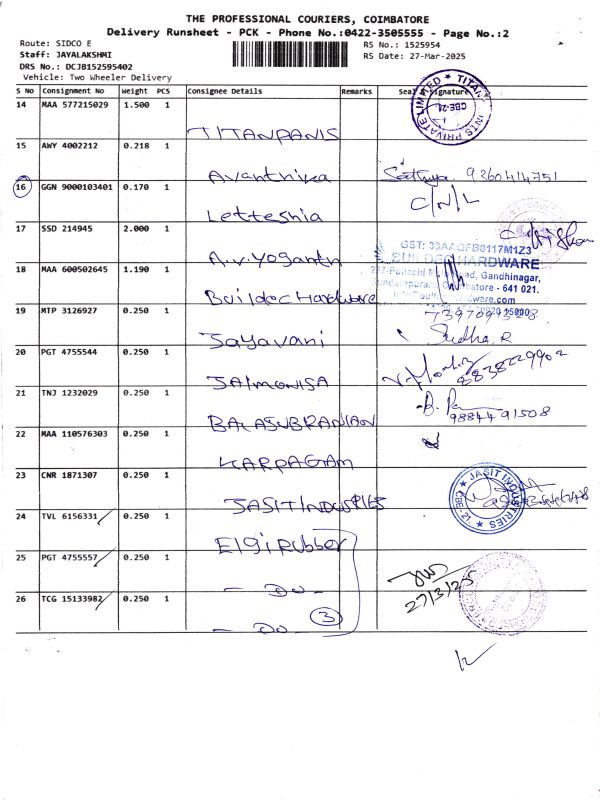 THE PROFESSIONAL COURIERS, COIMBATORE
Delivery Runsheet - PCK - Phone No.:0422-3505555 - Page No.:2
Route: SIDCO E
RS No.: 1525954
Staff: JAYALAKSHMI
RS Date: 27-Mar-2025
DRS No.: DCJB152595402
Vehicle: Two Wheeler Delivery
S No Consignment No Weight PCS Consignee Details Remarks Seal Signature
14 MAA 577215029 1.500 1 TITANPANIS
TITAN INTS PRIVATE LIMITED CBE-21
15 AWY 4002212 0.218 1 Avanthika Sathya 9360414751
16 GGN 9000103401 0.170 1 Letteshia C/N/L
17 SSD 214945 2.000 1 A.V.Yoganth
18 MAA 600502645 1.190 1 Buildec Hardware
GST: 33AAQFB8117M1Z3
BUILDEC HARDWARE
Gandhinagar,
641 021.
19 MTP 3126927 0.250 1 Jayavani
Sudha.R
20 PGT 4755544 0.250 1 JAIMONISA 8838229902
21 TNJ 1232029 0.250 1 BALASUBRANIAN 9884491508
22 MAA 110576303 0.250 1 KARPAGAM
23 CNR 1871307 0.250 1 JASIT INDUSTRIES
JASIT INDUSTRIES CBE-21.
24 TVL 6156331 0.250 1 Elgi rubber
25 PGT 4755557 0.250 1 - Do -
27/3/25
26 TCG 15133982 0.250 1 - Do - 3